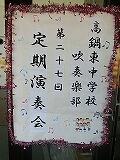 高鍋東中学校
吹奏楽部
第二十七回
定期演奏会